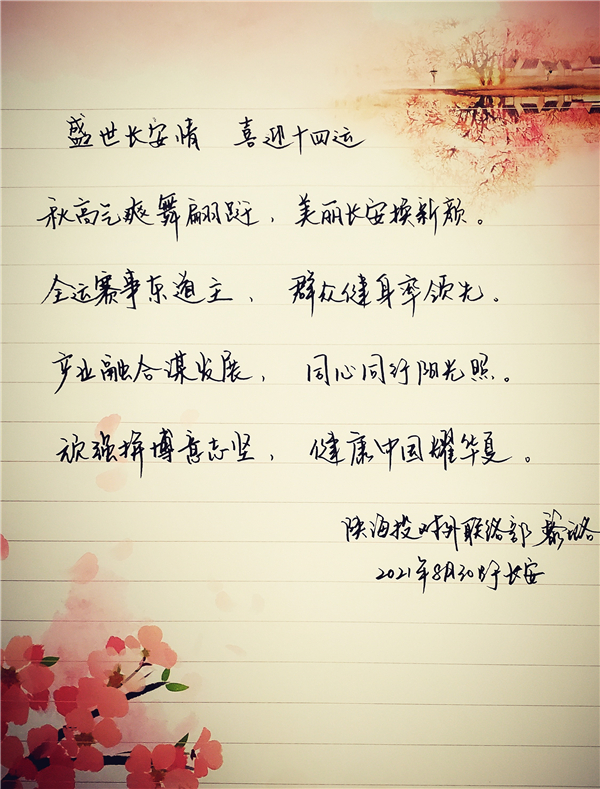 盛世长安情 喜迎十四运
秋高气爽舞翩跹，美丽长安换新颜。
全运赛事东道主，群众健身率领先。
产业融合谋发展，同心同行阳光照。
顽强拼搏意志坚，健康中国耀华夏。
陕海投对外联络部
2021年8月30日于长安